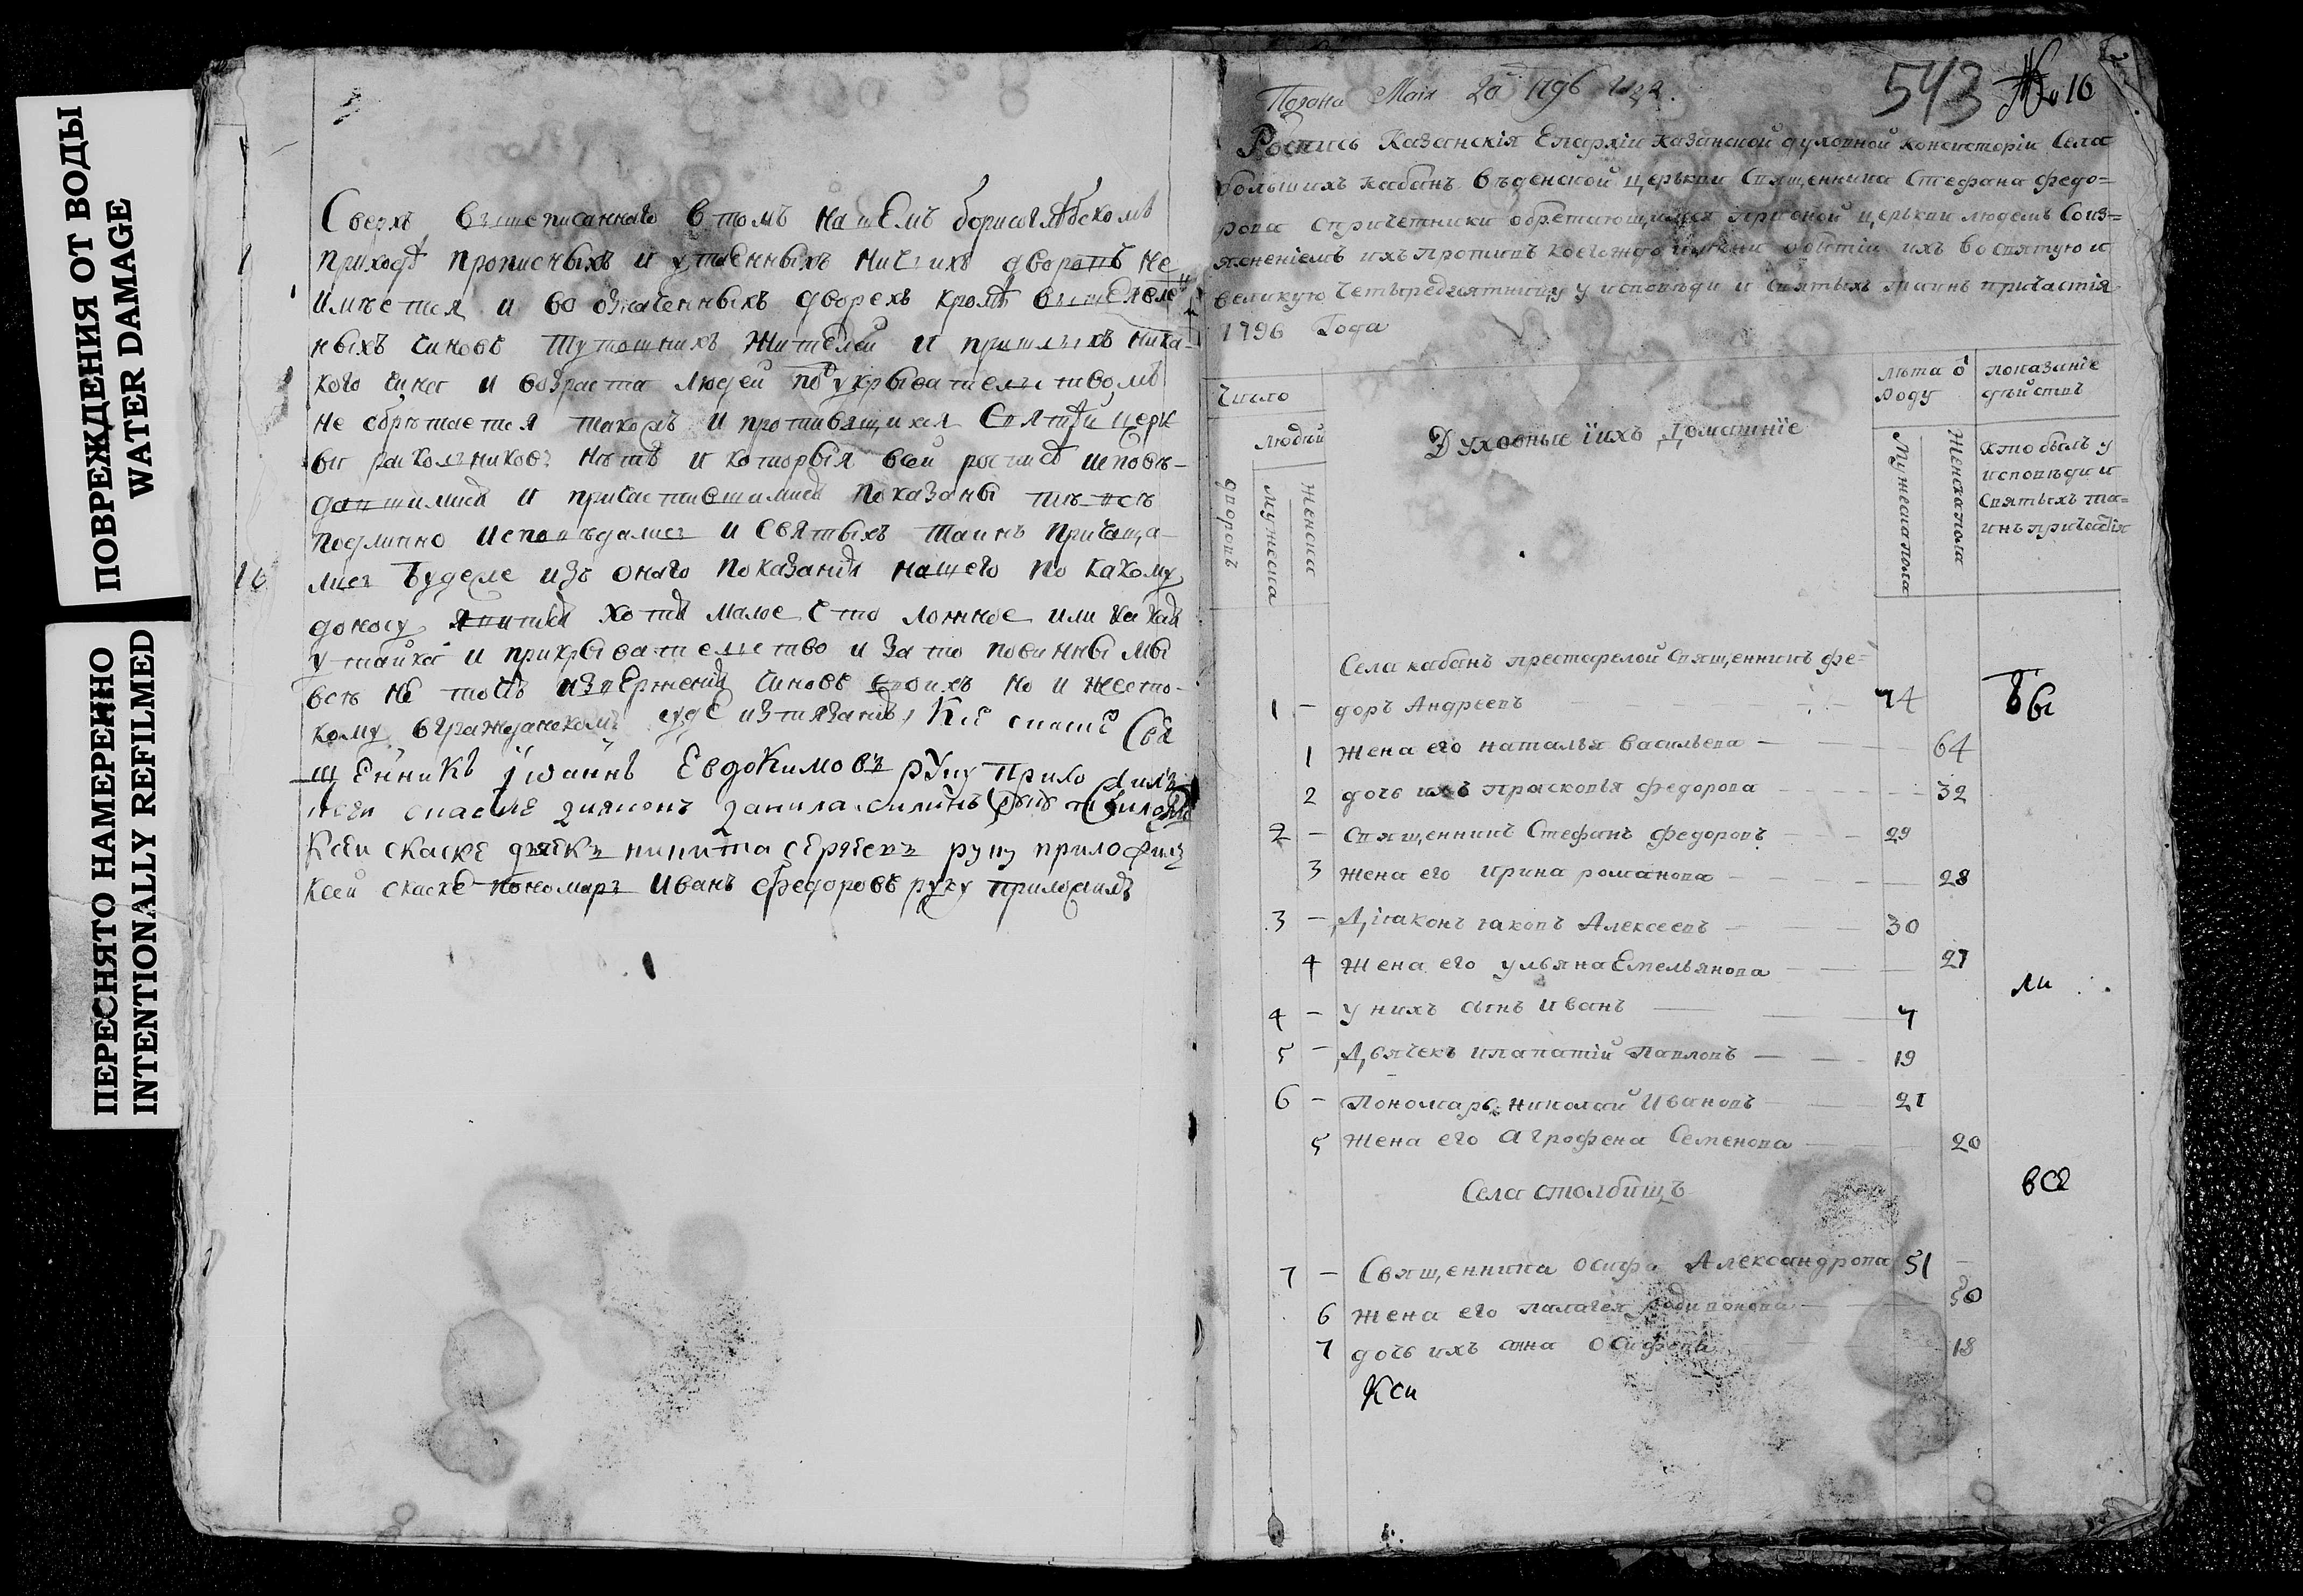 ПОВРЕЖДЕНИЯ ОТ ВОДЫ
WATER DAMAGE
ПЕРЕСНЯТО НАМЕРЕННО
INTENTIONALLY REFILMED
Сверхъ вышеписаннаго в томъ нашемъ борисоглѣбскомъ
приходѣ прописныхъ и утаенныхъ ничьихъ дворовъ не
имѣетца и во означенныхъ дворехъ кромѣ вышеявле
ныхъ чиновъ тутошнихъ жителей и пришлыхъ ника-
кого чина и возраста людей под укрывательствомъ
не обрѣтается такожъ и противящихся Святѣй церк
ви раскольниковъ нѣтъ и которыя всей росписѣ исповѣ-
давшимися и причастившимися показаны тѣ всѣ
подлинно исповѣдались и святыхъ таинъ прича-
лись Будеже изъ онаго показания нашего по какому
доносу явится хотя малое что ложное или какая
утайка и прикрывательство и за то повинны мы
всѣ не точïю извержения чиновъ своихъ но и жесто-
кому в гражданскомъ суде изтязанию, Ксе скаске Свя
щенникъ Iоаннъ Евдокимовъ руку приложилъ
ксеи скаске дияконъ данила силинъ
Ксеи скаске дьячекъ никита сергеевъ руку приложилъ
Ксей скаске пономарь Иванъ федоровъ руку приложилъ
1
16
Подана Маия 20 1796 года.
543 № 16
Роспись Казанскiя Епархiи казанской духовной консисторiи Села
большихъ кабанъ введенской церькви Священника Стефана федо=
рова спричетники обретающимся прионой церькви людемъ Соиз=
яснениемъ ихъ противъ коегождо имени о бытiи ихъ во святую и
великую четыредесятницу у исповѣди и святыхъ таинъ причастiя
1796 Года
Число
людей
дворовъ
Мужеска
Женска
Духовные iихъ Домашнiе
лѣта ѿ
роду
Мужеска пола
Женска пола
показанiе
дѣйствъ
кто былъ у
исповѣди и
Святыхъ та=
инъ причастiя
Села кабанъ престарелой священникъ фе=
1 - доръ Андреевъ 74 Бы
1 Жена его наталья васильева 64
2 дочь ихъ прасковья федорова 32
2 - Священникъ Стефанъ федоровъ 29
3 Жена его ирина романова 28
3 - Дiаконъ iаковъ Алексеевъ 30
4 Жена его ульяна Емельянова 27
ли
4 - у нихъ сынъ иванъ 7
5 - Дьячекъ ипатiй Павловъ 19
6 - Пономарь николай Ивановъ 21
5 Жена его агрофена Семенова 20
Села столбищъ
все
7 - Священника осифа Александрова 51
6 Жена его палагея родивонова 50
7 дочь ихъ анна осифова 18
Кси